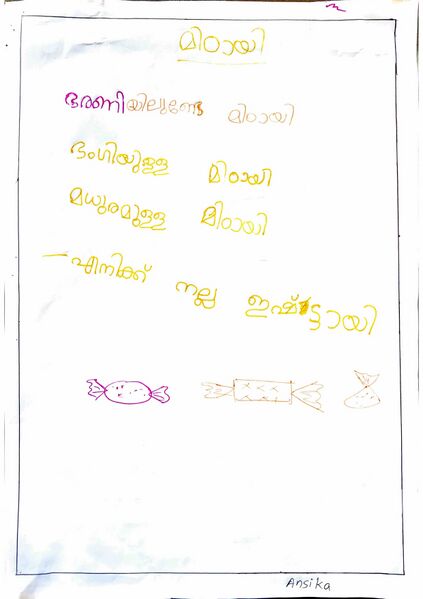 മിഠായി
ഭരണിയിലുണ്ടേ മിഠായി
ഭംഗിയുള്ള മിഠായി
മധുരമുള്ള മിഠായി
എനിക്ക് നല്ല ഇഷ്ട്ടായി
Ansika